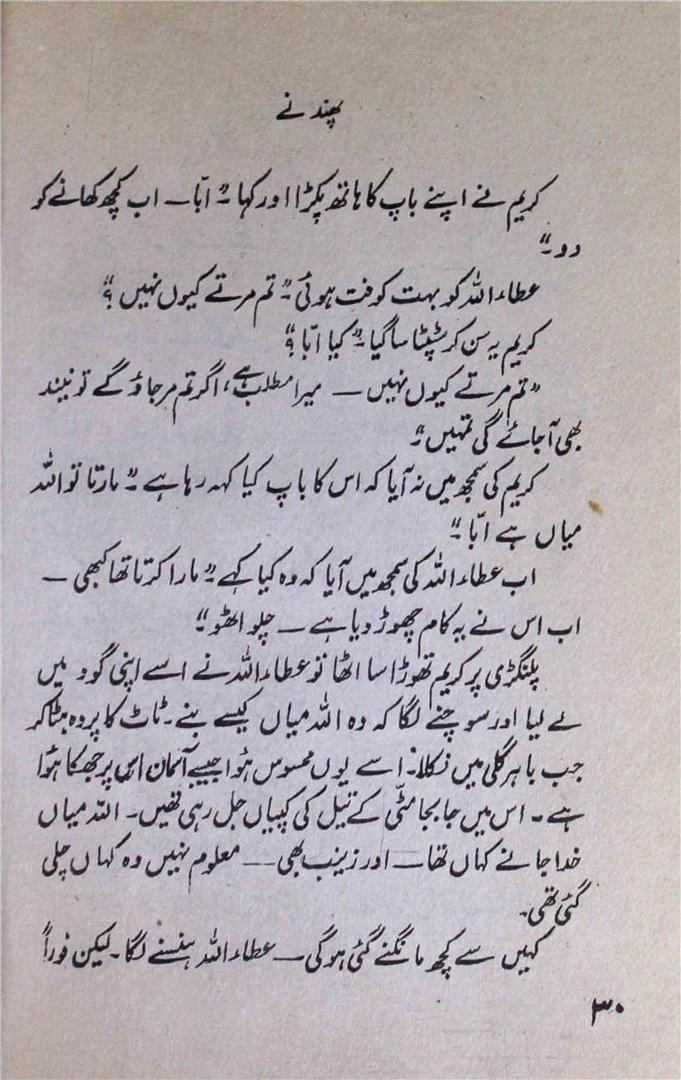 پھندنے
کریم نے اپنے باپ کا ہاتھ پکڑا اور کہا۔ "ابّا — اب کچھ کھانے کو
دو۔"
عطاء اللہ کو بہت کوفت ہوئی۔ "تم مرتے کیوں نہیں؟"
کریم یہ سن کر سٹپٹا سا گیا۔ "کیا ابّا؟"
"تم مرتے کیوں نہیں — میرا مطلب ہے، اگر تم مر جاؤ گے تو نیند
بھی آ جائے گی تمہیں۔"
کریم کی سمجھ میں نہ آیا کہ اس کا باپ کیا کہہ رہا ہے۔ "مارتا تو اللہ
میاں ہے ابّا۔"
اب عطاء اللہ کی سمجھ میں آیا کہ وہ کیا کہے۔ "مارا کرتا تھا کبھی —
اب اس نے یہ کام چھوڑ دیا ہے — چلو اٹھو۔"
پلنگڑی پر کریم تھوڑا سا اٹھا تو عطاء اللہ نے اسے اپنی گود میں
لے لیا اور سوچنے لگا کہ وہ اللہ میاں کیسے بنے۔ ٹاٹ کا پردہ ہٹا کر
جب باہر گلی میں نکلا۔ اسے یوں محسوس ہُوا جیسے آسمان اس پر جھکا ہُوا
ہے۔ اس میں جابجا مٹّی کے تیل کی کپیاں جل رہی تھیں۔ اللہ میاں
خدا جانے کہاں تھا — اور زینب بھی — معلوم نہیں وہ کہاں چلی
گئی تھی۔
کہیں سے کچھ مانگنے گئی ہو گی — عطاء اللہ ہنسنے لگا۔ لیکن فوراً
۳۰